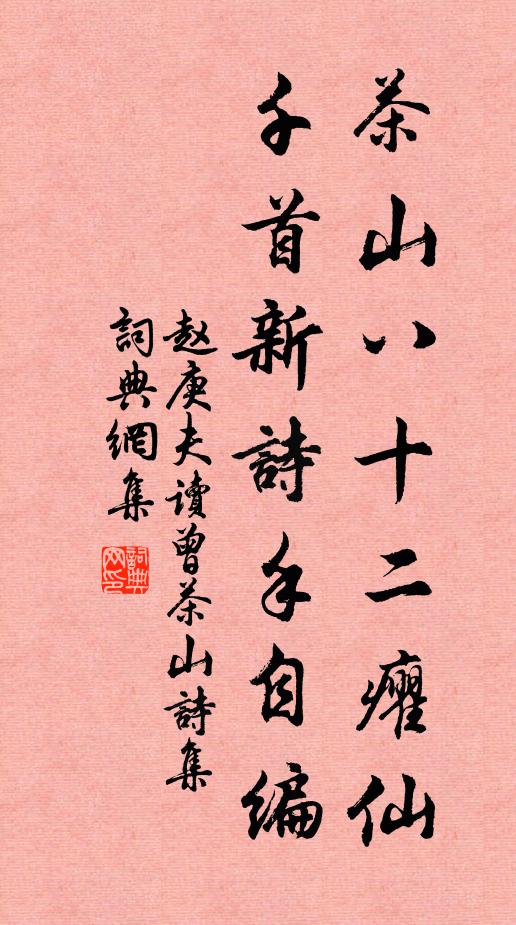 茶山八十二癯仙
千首新詩手自编
赵庚夫读曾茶山詩集
詞典網集
詞典网印